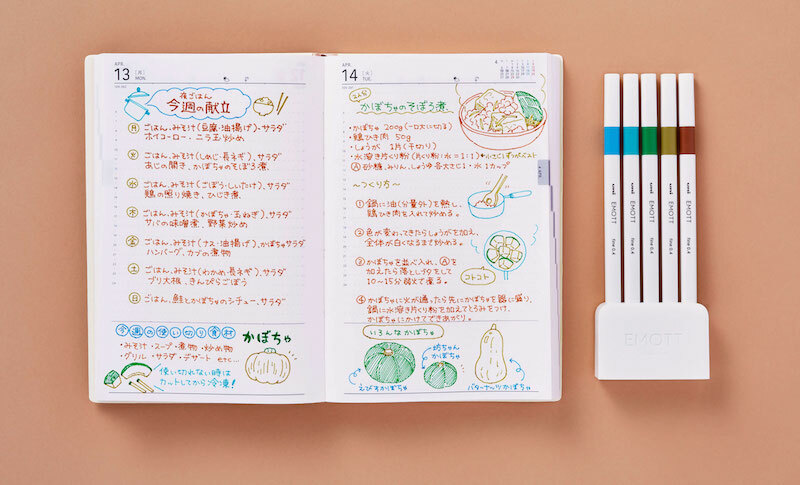 APR.
13 [月]
MON.
夜ごはん
今週の献立
月 ごはん、みそ汁(豆腐・油揚げ)、サラダ
ホイコーロー、ニラ玉炒め
火 ごはん、みそ汁(しめじ・長ネギ)、サラダ
あじの開き、かぼちゃのそぼろ煮
水 ごはん、みそ汁(ごぼう・しいたけ)、サラダ
鶏の照り焼き、ひじき煮
木 ごはん、みそ汁(かぼちゃ・玉ねぎ)、サラダ
サバの味噌煮、野菜炒め
金 ごはん、みそ汁(ナス・油揚げ)、かぼちゃサラダ
ハンバーグ、カブの煮物
土 ごはん、みそ汁(わかめ・長ネギ)、サラダ
ブリ大根、きんぴらごぼう
日 ごはん、鮭とかぼちゃのシチュー、サラダ
今週の使い切り食材
かぼちゃ
・みそ汁・スープ・煮物・炒め物
・グリル・サラダ・デザート etc...
使い切れない時は
カットしてから冷凍!
APR.
14 [火]
TUE.
4
かぼちゃのそぼろ煮
・かぼちゃ 200g(一口大に切る)
・鶏ひき肉 50g
・しょうが 1片(千切り)
・水溶き片くり粉(片くり粉:水=1:1)
Ⓐ砂糖、みりん、しょうゆ各大さじ1・水1カップ
〜つくり方〜
① 鍋に油(分量外)を熱し、
鶏ひき肉を入れて炒める。
② 色が変わってきたらしょうがを加え、
全体が白くなるまで炒める。
③ かぼちゃを並べ入れ、Ⓐを
加えたら落としブタをして
10〜15分弱火で煮る。
コトコト
④ かぼちゃに火が通ったら先にかぼちゃを器に盛り、
鍋に水溶き片くり粉を加えてとろみをつけ、
かぼちゃにかけてできあがり。
いろんなかぼちゃ
えびすかぼちゃ
坊ちゃん
かぼちゃ
バターナッツかぼちゃ
4 APR.
uni EMOTT fine 0.4
uni EMOTT fine 0.4
uni EMOTT fine 0.4
uni EMOTT fine 0.4
uni EMOTT fine 0.4
EMOTT